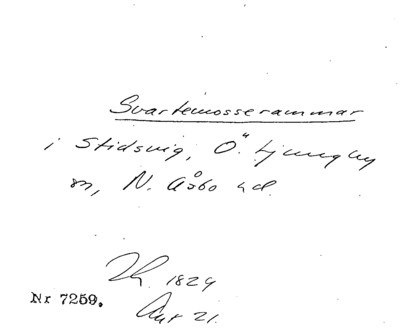 Svartemosserammar
i Stidsvig, Ö. Ljungby
sn, N. Åsbo hd.
Th. 1829
Nr 7259.
21.